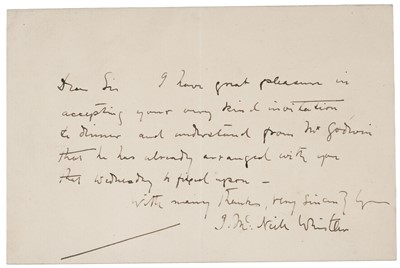 Dear Sir I have great pleasure in
accepting your very kind invitation
to dinner and understand from Mr Godwin
that he has already arranged with you
that Wednesday is fixed upon –
With many thanks, very sincerely yours
J. McNeill Whistler